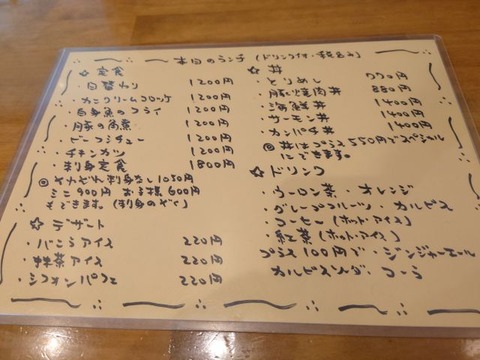 本日のランチ (ドリンク付・税込み)
☆ 定食
・日替わり 1200円
・カニクリームコロッケ 1200円
・白身魚のフライ 1200円
・豚の角煮 1200円
・ビーフシチュー 1200円
・チキンカツ 1200円
・刺身定食 1800円
◎ それぞれ刺身なし1050円
ミニ900円 お子様600円
もできます。(刺身のぞく)
☆ デザート
・バニラアイス 220円
・抹茶アイス 220円
・シフォンパフェ 220円
☆ 丼
・とりめし
・豚焼肉丼 880円
・海鮮丼 1400円
・サーモン丼 1400円
・カンパチ丼 1400円
◎ 丼はプラス450円でスペシャル
にできます。
☆ ドリンク
・ウーロン茶・オレンジ
・グレープフルーツ・カルピス
・コーヒー(ホット・アイス)
・紅茶(ホット・アイス)
プラス100円で・ジンジャーエール
カルピスソーダ・コーラ